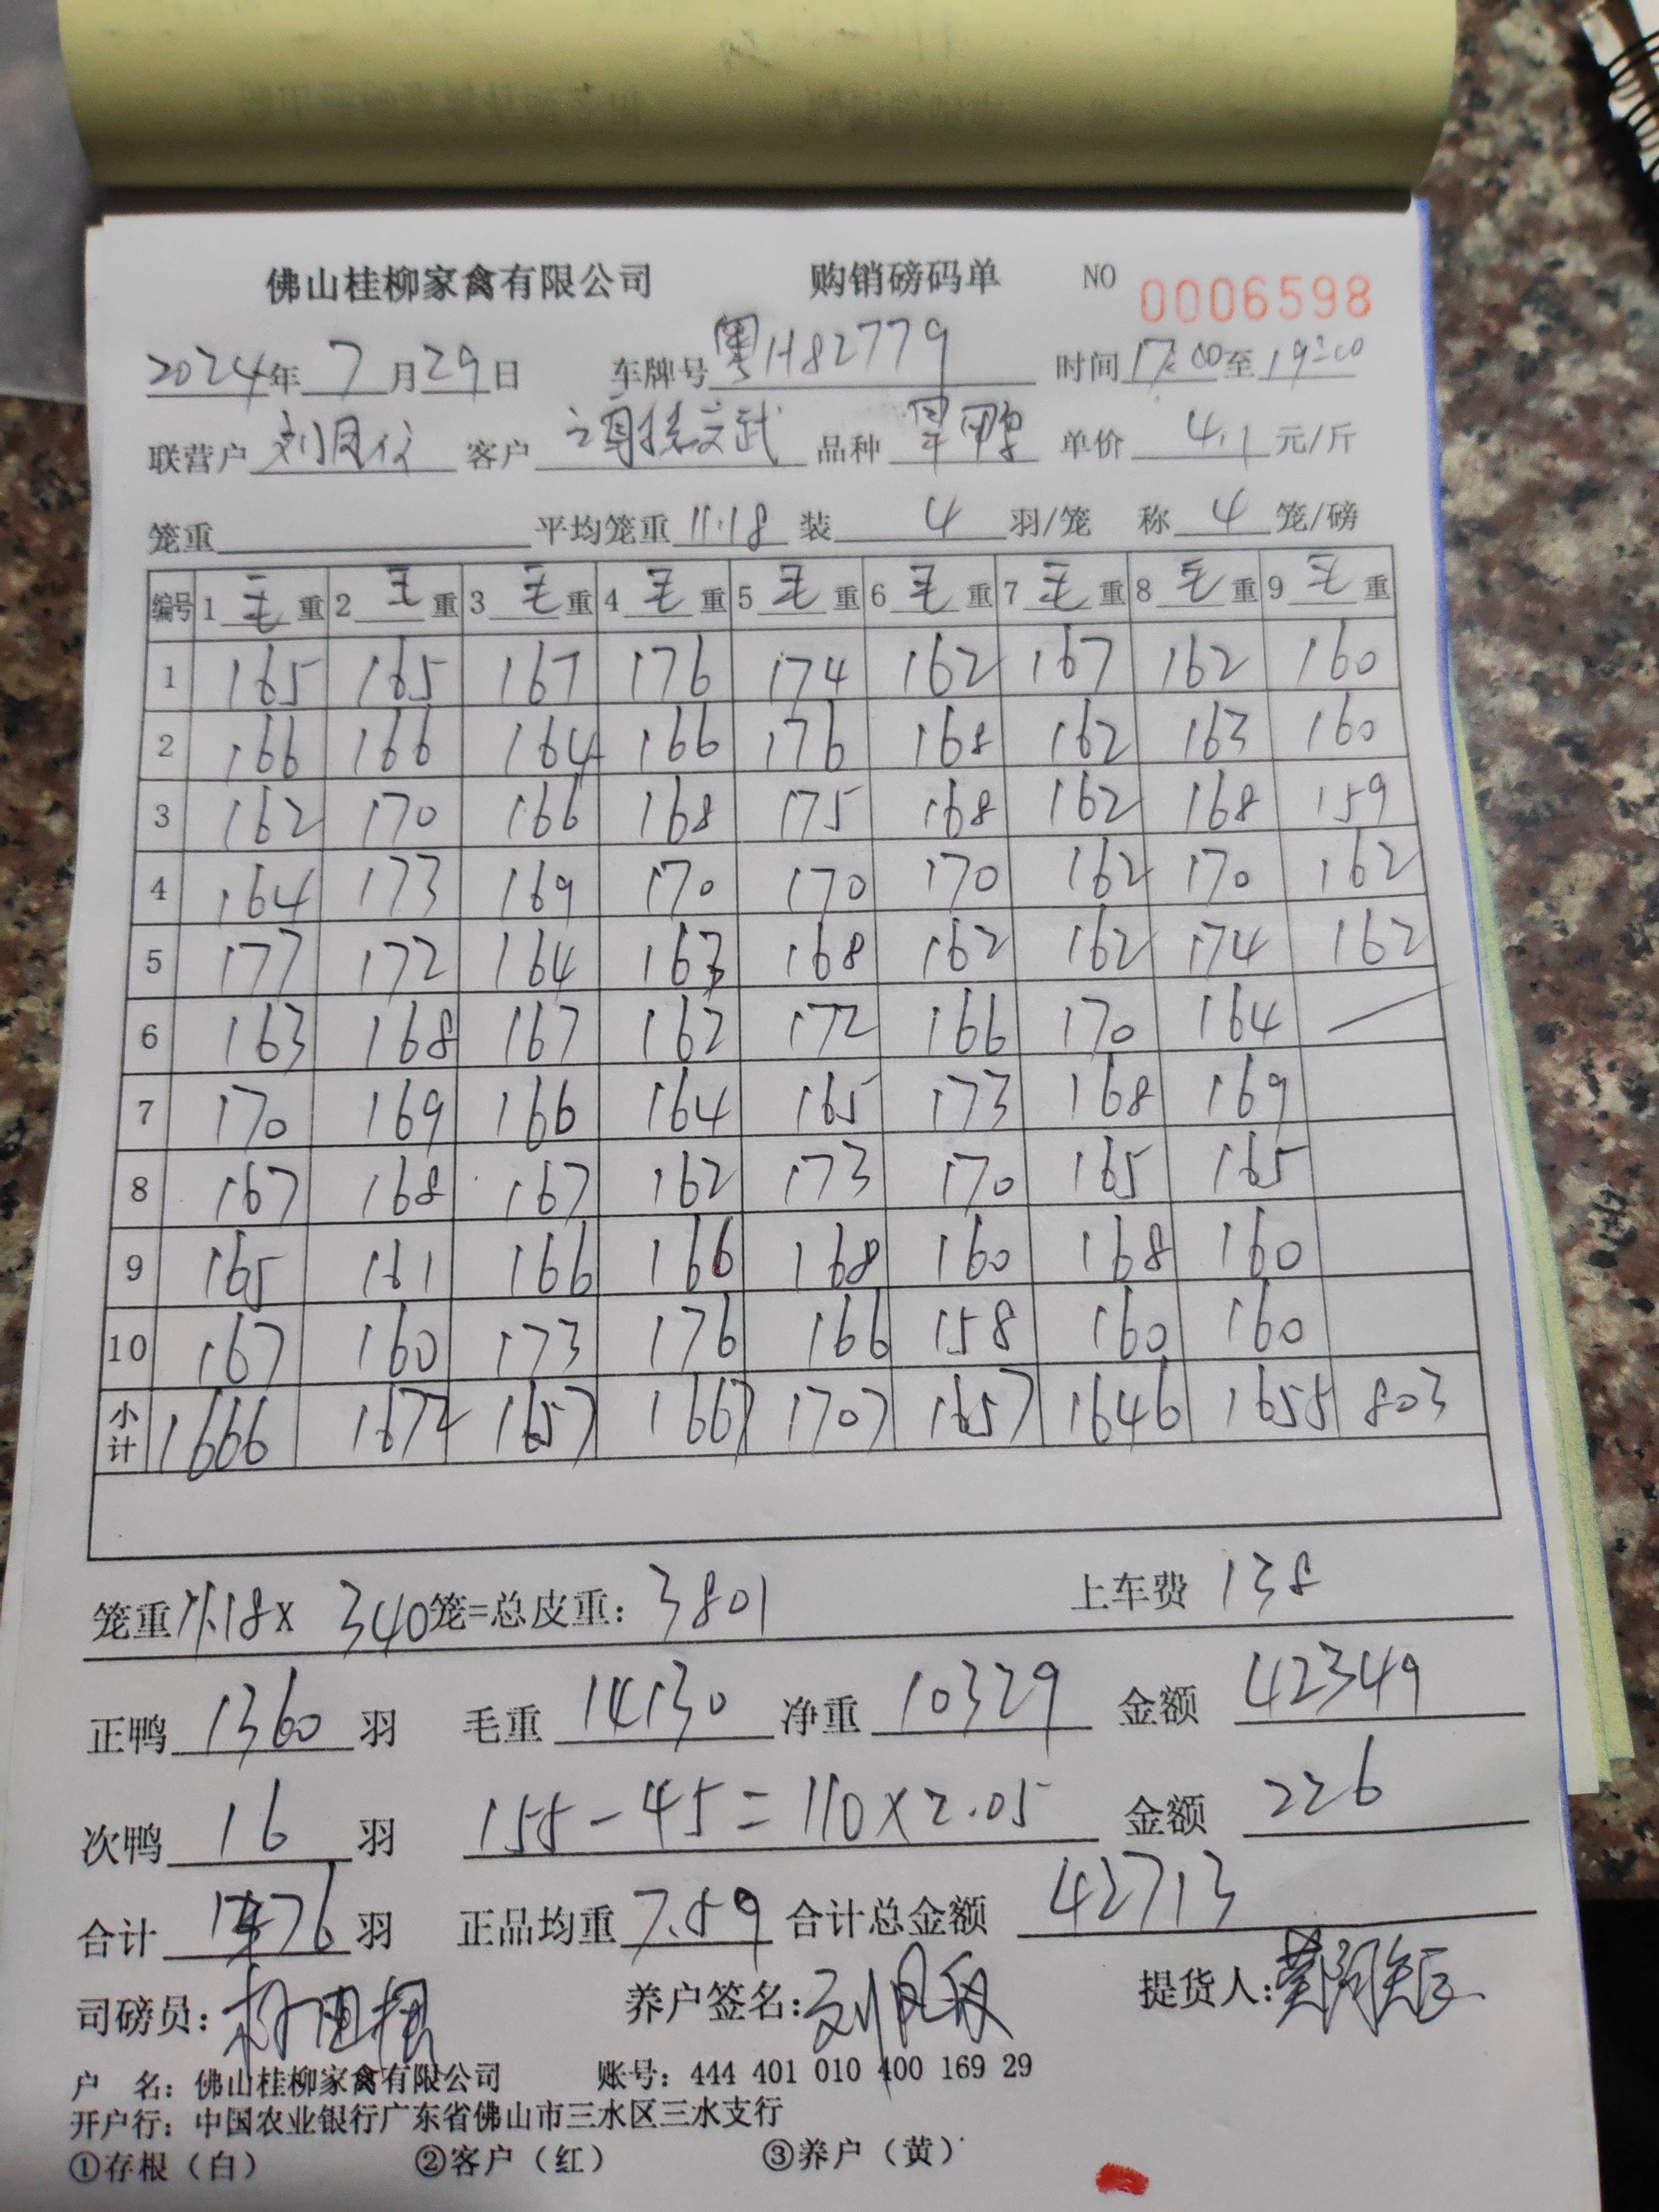 佛山桂柳家禽有限公司 购销磅码单 NO 0006598
2024年 7 月 29 日 车牌号 粤H82779 时间 17:00 至 19:00
联营户 刘凤 客户 文武 品种 旱鸭 单价 4.1 元/斤
笼重 平均笼重 11.18 装 4 羽/笼 称 4 笼/磅
编号 1 毛 重 2 毛 重 3 毛 重 4 毛 重 5 毛 重 6 毛 重 7 毛 重 8 毛 重 9 毛 重
1 165 165 167 176 174 162 167 162 160
2 166 166 164 166 176 168 162 163 160
3 162 170 166 168 175 168 162 168 159
4 164 173 169 170 170 170 162 170 162
5 177 172 164 163 168 162 162 174 162
6 163 168 167 162 172 166 170 164
7 170 169 166 164 165 173 168 169
8 167 168 167 162 173 170 165 165
9 165 161 166 166 168 160 168 160
10 167 160 173 176 166 158 160 160
小计 1666 1672 1657 1667 1707 1657 1646 1655 803
笼重 11.18 x 340 笼=总皮重: 3801 上车费 138
正鸭 1360 羽 毛重 14130 净重 10329 金额 42349
次鸭 16 羽 155-45=110x2.05 金额 226
合计 1376 羽 正品均重 7.59 合计总金额 42713
司磅员: 养户签名: 刘凤 提货人:
户 名: 佛山桂柳家禽有限公司 账号: 444 401 010 400 169 29
开户行: 中国农业银行广东省佛山市三水区三水支行
①存根(白) ②客户(红) ③养户(黄)